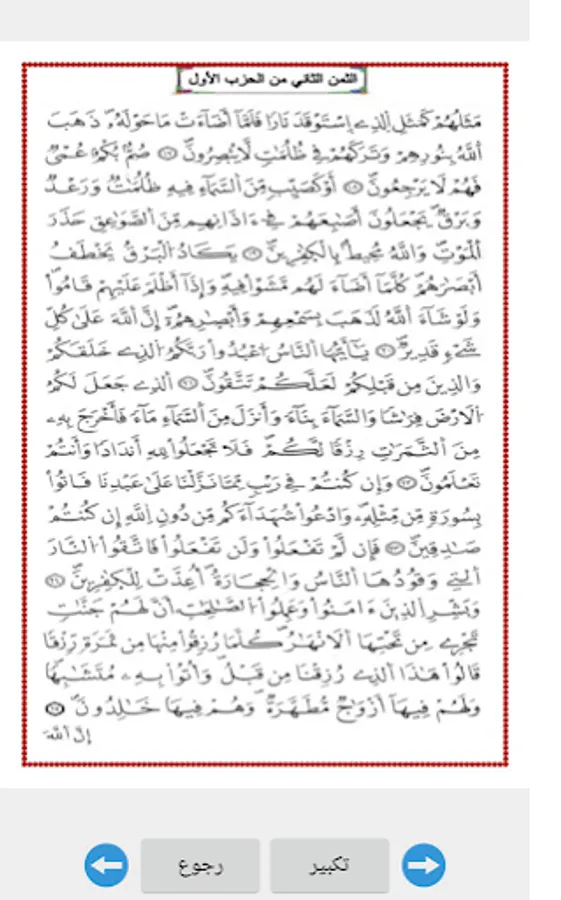 الثمن الثاني من الحزب الأول
مَثَلُهُمْ كَمَثَلِ اِ۬لذِے اِ۪سْتَوْقَدَ نَاراٗ فَلَمَّآ أَضَآءَتْ مَا حَوْلَهُۥ ذَهَبَ
اَ۬للَّهُ بِنُورِهِمْ وَتَرَكَهُمْ فِے ظُلُمَٰتٖ لَّا يُبْصِرُونَۖ ۝ صُمُّۢ بُكْمٌ عُمْيٞ
فَهُمْ لَا يَرْجِعُونَۖ ۝ أَوْ كَصَيِّبٖ مِّنَ اَ۬لسَّمَآءِ فِيهِ ظُلُمَٰتٞ وَرَعْدٞ
وَبَرْقٞ يَجْعَلُونَ أَصَٰبِعَهُمْ فِےٓ ءَاذَانِهِم مِّنَ اَ۬لصَّوَٰعِقِ حَذَرَ
اَ۬لْمَوْتِۖ وَاللَّهُ مُحِيطُۢ بِالْكٰ۪فِرِينَۖ ۝ يَكَادُ اُ۬لْبَرْقُ يَخْطَفُ
أَبْصَٰرَهُمْ كُلَّمَآ أَضَآءَ لَهُم مَّشَوْاْ فِيهِ وَإِذَآ أَظْلَمَ عَلَيْهِمْ قَامُواْۖ
وَلَوْ شَآءَ اَ۬للَّهُ لَذَهَبَ بِسَمْعِهِمْ وَأَبْصٰ۪رِهِمُۥٓۖ إِنَّ اَ۬للَّهَ عَلَىٰ كُلِّ
شَےْءٖ قَدِيرٞۖ ۝ يَٰٓأَيُّهَا اَ۬لنَّاسُ اُ۟عْبُدُواْ رَبَّكُمُ اُ۬لذِے خَلَقَكُمْ
وَالذِينَ مِن قَبْلِكُمْ لَعَلَّكُمْ تَتَّقُونَۖ ۝ اَ۬لذِے جَعَلَ لَكُمُ
اُ۬لَارْضَ فِرَٰشاٗ وَالسَّمَآءَ بِنَآءٗ وَأَنزَلَ مِنَ اَ۬لسَّمَآءِ مَآءٗ فَأَخْرَجَ بِهِۦ
مِنَ اَ۬لثَّمَرَٰتِ رِزْقاٗ لَّكُمْۖ فَلَا تَجْعَلُواْ لِلهِ أَندَاداٗ وَأَنتُمْ
تَعْلَمُونَۖ ۝ وَإِن كُنتُمْ فِے رَيْبٖ مِّمَّا نَزَّلْنَا عَلَىٰ عَبْدِنَا فَاتُواْ
بِسُورَةٖ مِّن مِّثْلِهِۦ وَادْعُواْ شُهَدَآءَكُم مِّن دُونِ اِ۬للَّهِ إِن كُنتُمْ
صَٰدِقِينَۖ ۝ فَإِن لَّمْ تَفْعَلُواْ وَلَن تَفْعَلُواْ فَاتَّقُواْ اُ۬لنَّارَ
اَ۬لتِے وَقُودُهَا اَ۬لنَّاسُ وَالْحِجَارَةُۖ أُعِدَّتْ لِلْكٰ۪فِرِينَۖ ۝
وَبَشِّرِ اِ۬لذِينَ ءَامَنُواْ وَعَمِلُواْ اُ۬لصَّٰلِحَٰتِ أَنَّ لَهُمْ جَنَّٰتٖ
تَجْرِے مِن تَحْتِهَا اَ۬لَانْهَٰرُۖ كُلَّمَا رُزِقُواْ مِنْهَا مِن ثَمَرَةٖ رِّزْقاٗ
قَالُواْ هَٰذَا اَ۬لذِے رُزِقْنَا مِن قَبْلُۖ وَأُتُواْ بِهِۦ مُتَشَٰبِهاٗ
وَلَهُمْ فِيهَآ أَزْوَٰجٞ مُّطَهَّرَةٞۖ وَهُمْ فِيهَا خَٰلِدُونَۖ ۝
إِنَّ اَ۬للَّهَ
رجوع
تكبير